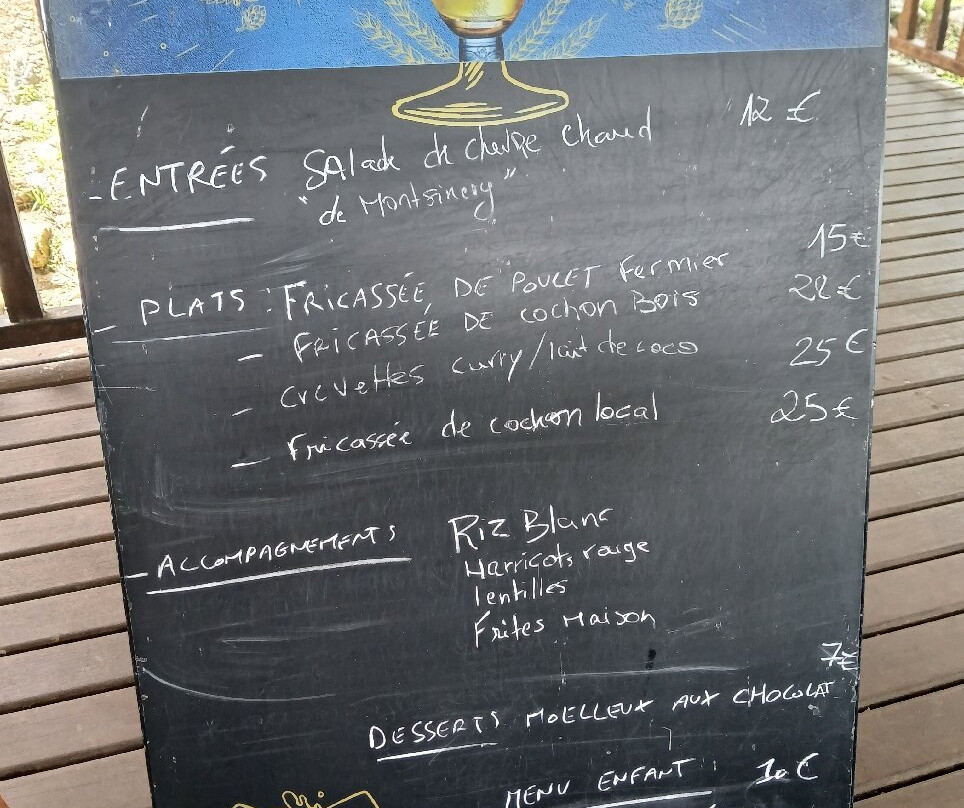 - ENTRÉES Salade de chèvre chaud 12 €
"de Montsinery"
- PLATS : FRICASSÉE, DE POULET Fermier 15€
- FRICASSÉE DE cochon Bois 22€
- crevettes curry/lait de coco 25€
- Fricassée de cochon local 25€
- ACCOMPAGNEMENTS Riz Blanc
Harricots rouge
lentilles
Frites Maison
7€
DESSERTS MOELLEUX AUX CHOCOLAT
MENU ENFANT : 10€